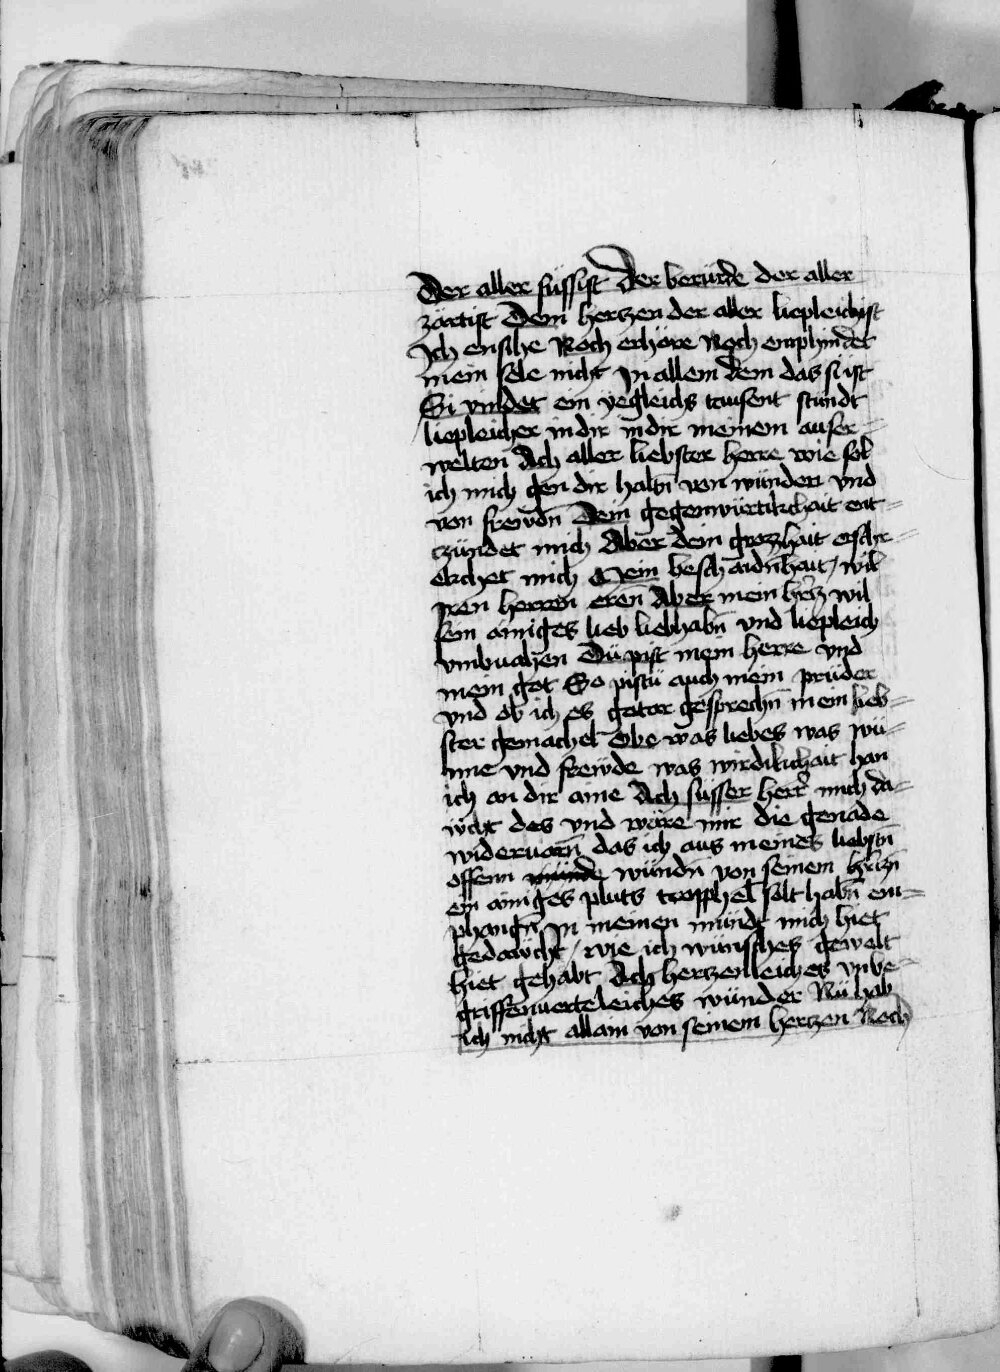 Der aller süssist Der berürde der aller
zärtist Dem hertzen der aller liepleichist
Ich ensihe Noch erhöre Noch emphindet
mein sele nicht In allem dem das si ist
Si vindet ein yegleichs tausent stundt
liepleicher in dir in dir meinem auser-
welten Ach aller liebster herre wie sol
ich mich gen dir habñ von wunder vnd
von frewdñ Dein gegenwürtikchait ent-
czündet mich Aber dein grozzhait erschr-
ekchet mich Mein beschaidnhait / wil
iren herren eren Aber mein hercz wil
sein ainiges lieb liebhabñ vnd liepleich
vmbuahen Du pist mein herre vnd
mein got So pistu auch mein prüder
vnd ob ich es getar gesprechñ mein lieb-
ster gemachel Obe was liebes was wü-
nne vnd frewde was wirdikchait han
ich an dir aine Ach süsser herr mich da-
wcht des vnd wäre mir die genade
wideruarñ das ich aus meines liebstñ
offenn münde wundñ von seinem hertzñ
ein ainiges pluts tropphel solt habñ em-
phangñ In meinen münde mich hiet
gedawcht / wie ich wunsches gewalt
hiet gehabt Ach hertzenleiches vnbe-
griffenuerteleiches wunder Nu hab
ich nicht allain von seinem hertzen Noch